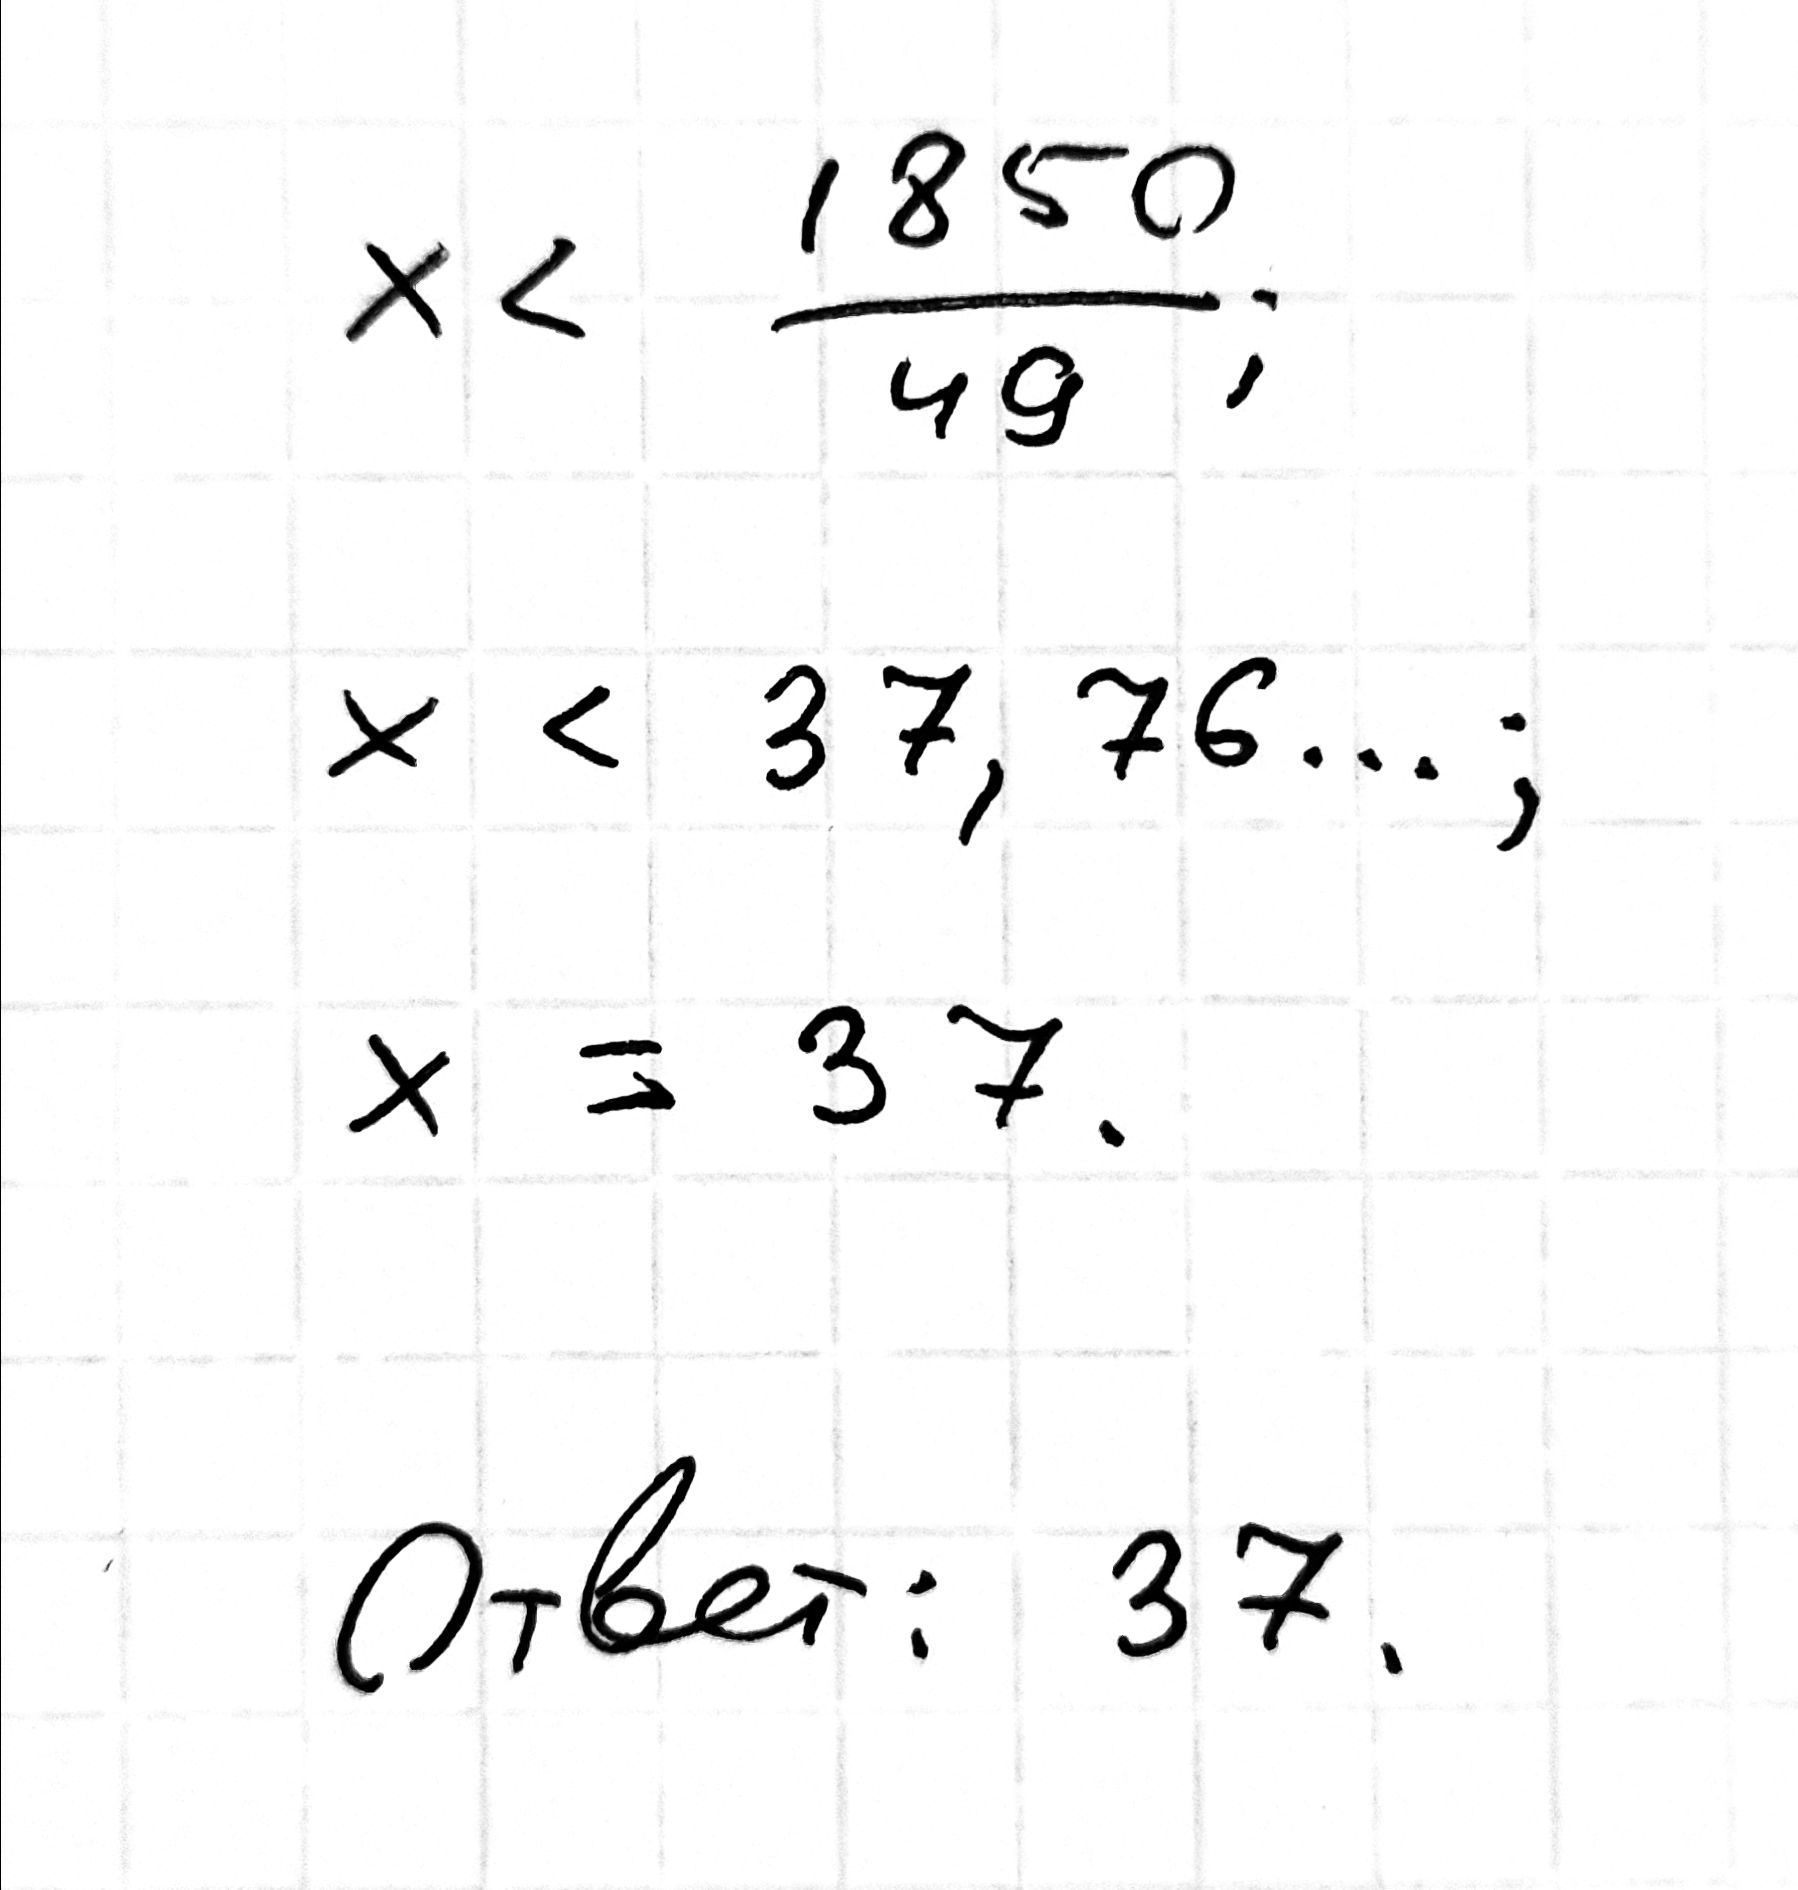 x < 1850/49;
x < 37,76...;
x = 37.
Ответ: 37.